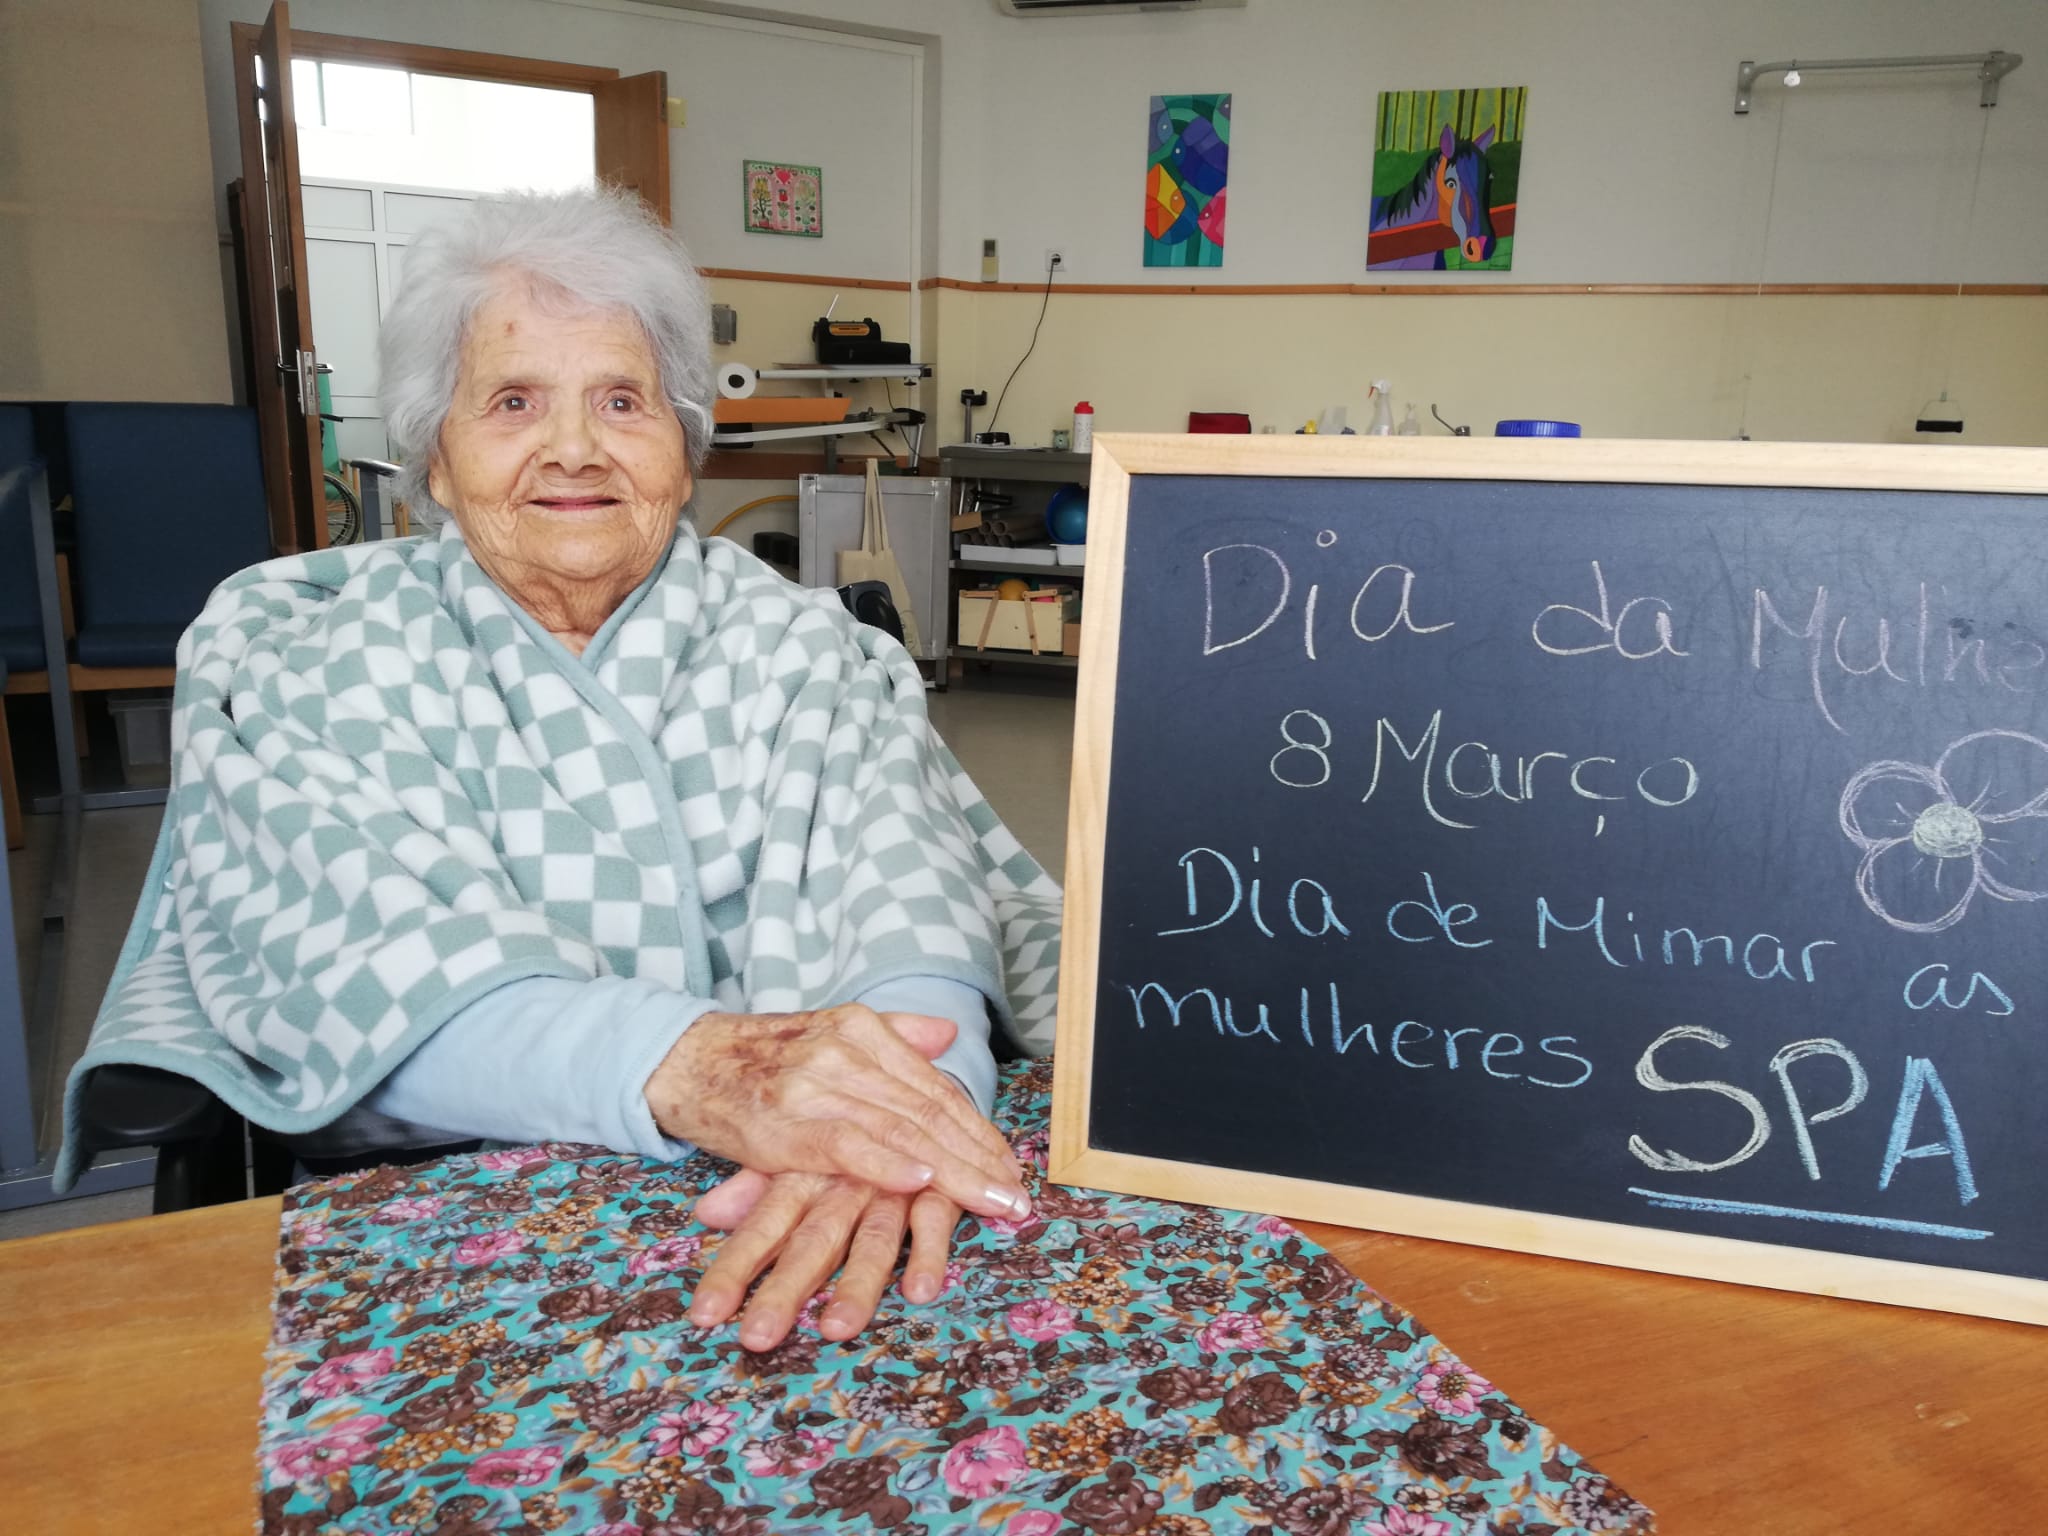 Dia da Mulhe
8 Março
Dia de Mimar as
mulheres SPA